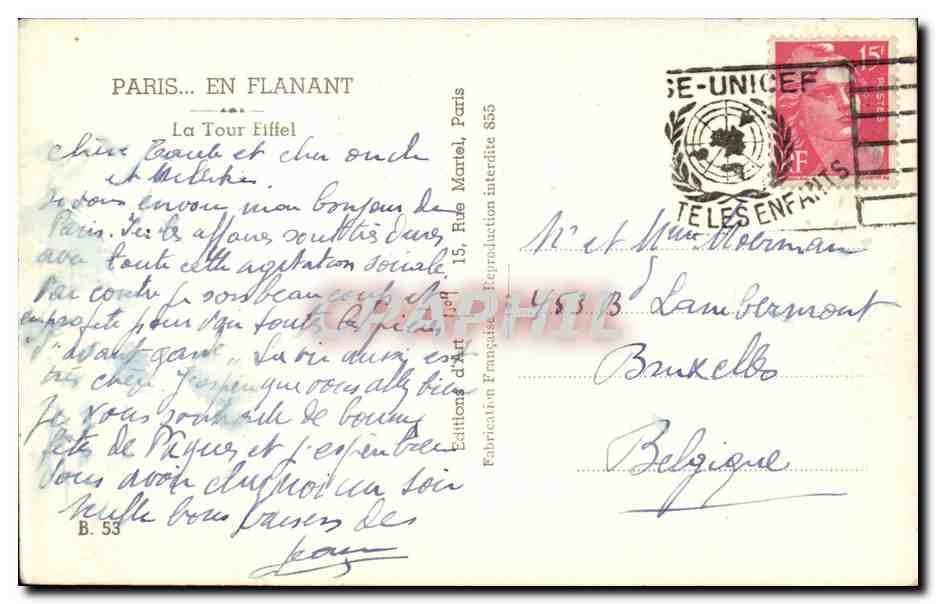 PARIS... EN FLANANT
La Tour Eiffel
Chère Tante et cher oncle
et
Je vous envoie mon bonjour de
Paris. Ici les affaires sont très dures
avec toute cette agitation sociale
Par contre je sors beaucoup et
en profite pour voir toutes les pièces
"d'avant garde". La vie aussi est
très chère. J'espère que vous allez bien
Je vous souhaite de bonnes
fêtes de Pâques et j'espère bien
vous avoir chez moi un soir
Mille bons baisers de
Jean
B. 53
Editions d'Art "Yvon" 15, Rue Martel, Paris
Fabrication Française - Reproduction interdite 855
SE-UNICEF
TE LES ENFANTS
15F
POSTES
RF
Mr et Mme Hoerman
453 Bd Lambermont
Bruxelles
Belgique
CPAPHIL